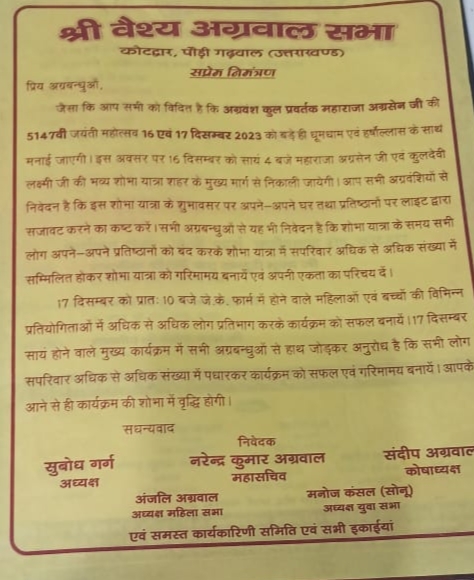 श्री वैश्य अग्रवाल सभा
कोटद्वार, पौड़ी गढ़वाल (उत्तराखण्ड)
सप्रेम निमंत्रण
प्रिय अग्रबन्धुओं,
जैसा कि आप सभी को विदित है कि अग्रवंश कुल प्रवर्तक महाराजा अग्रसेन जी की
5147वीं जयंती महोत्सव 16 एवं 17 दिसम्बर 2023 को बड़े ही धूमधाम एवं हर्षोल्लास के साथ
मनाई जाएगी। इस अवसर पर 16 दिसम्बर को सायं 4 बजे महाराजा अग्रसेन जी एवं कुलदेवी
लक्ष्मी जी की भव्य शोभा यात्रा शहर के मुख्य मार्ग से निकाली जायेगी। आप सभी अग्रवंशियों से
निवेदन है कि इस शोभा यात्रा के शुभावसर पर अपने-अपने घर तथा प्रतिष्ठानों पर लाइट द्वारा
सजावट करने का कष्ट करें। सभी अग्रबन्धुओं से यह भी निवेदन है कि शोभा यात्रा के समय सभी
लोग अपने-अपने प्रतिष्ठानों को बंद करके शोभा यात्रा में सपरिवार अधिक से अधिक संख्या में
सम्मिलित होकर शोभा यात्रा को गरिमामय बनायें एवं अपनी एकता का परिचय दें।
17 दिसम्बर को प्रातः 10 बजे जे.के. फार्म में होने वाले महिलाओं एवं बच्चों की विभिन्न
प्रतियोगिताओं में अधिक से अधिक लोग प्रतिभाग करके कार्यक्रम को सफल बनायें। 17 दिसम्बर
सायं होने वाले मुख्य कार्यक्रम में सभी अग्रबन्धुओं से हाथ जोड़कर अनुरोध है कि सभी लोग
सपरिवार अधिक से अधिक संख्या में पधारकर कार्यक्रम को सफल एवं गरिमामय बनायें। आपके
आने से ही कार्यक्रम की शोभा में वृद्धि होगी।
सधन्यवाद
निवेदक
सुबोध गर्ग नरेन्द्र कुमार अग्रवाल संदीप अग्रवाल
अध्यक्ष महासचिव कोषाध्यक्ष
अंजलि अग्रवाल मनोज कंसल (सोनू)
अध्यक्ष महिला सभा अध्यक्ष युवा सभा
एवं समस्त कार्यकारिणी समिति एवं सभी इकाईयां